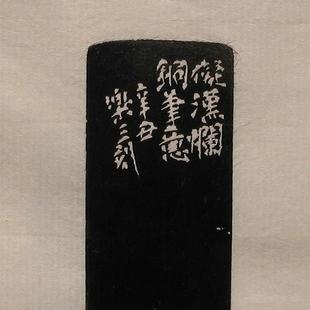 擬漢爛
銅筆意
辛丑
樂三刻